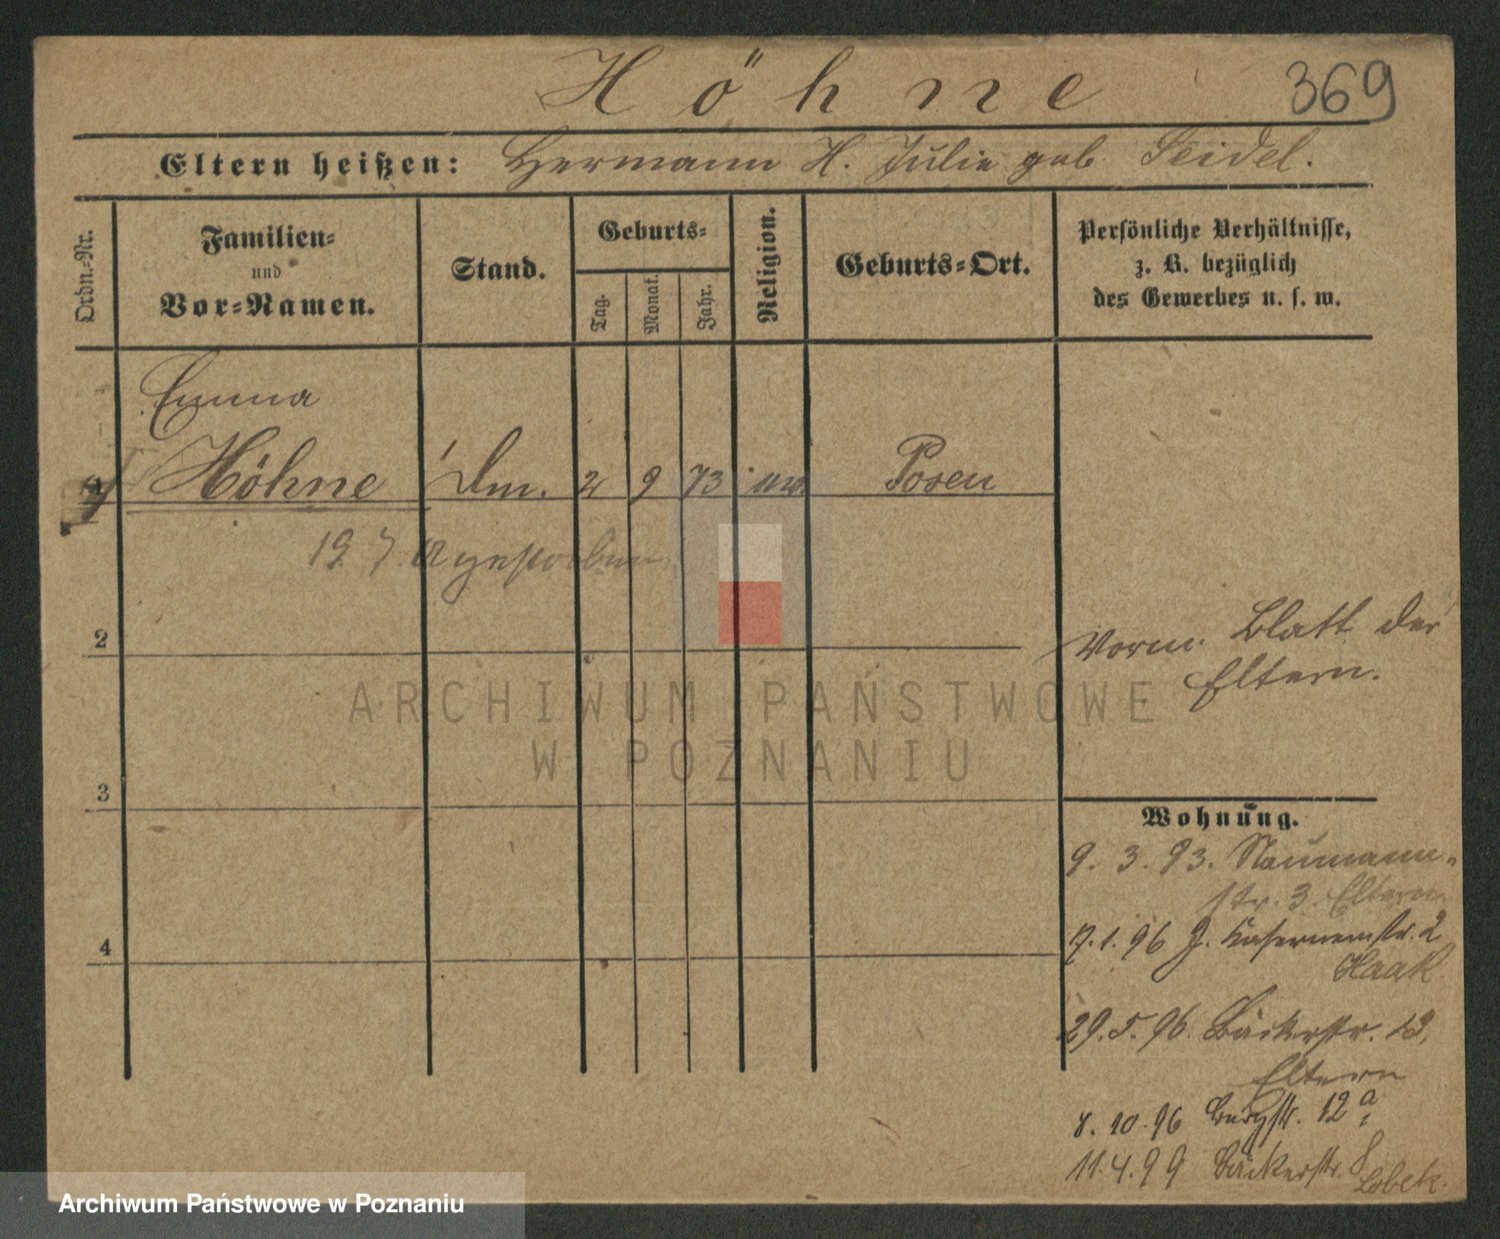 Höhne
369
Eltern heißen: Hermann H. Julie geb. Seidel.
Ordn.-Nr.
Familien-
und
Vor-Namen.
Stand.
Geburts-
Tag.
Monat.
Jahr.
Religion.
Geburts-Ort.
Persönliche Verhältnisse,
z. B. bezüglich
des Gewerbes u. s. w.
Emma
1 Höhne 2 9 73 Posen
19 7 gestorben
2
Vorm. Blatt der
Eltern.
ARCHIWUM PAŃSTWOWE
W POZNANIU
3
Wohnung.
9. 3. 93. Naumann-
str. 3. Eltern
17.1.96 Kasernenstr. 2
Haak
4
29.5.96. Bäckerstr. 19.
Eltern
8. 10. 96 Burgstr. 12a
11.4.99 Bäckerstr. 8
Archiwum Państwowe w Poznaniu